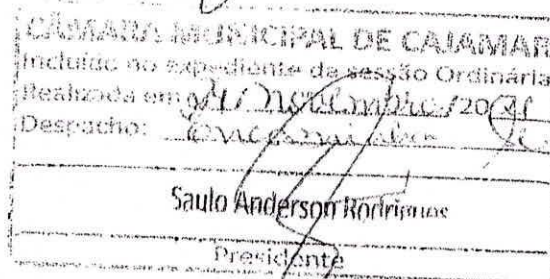 CÂMARA MUNICIPAL DE CAJAMAR
Incluído no expediente da sessão Ordinária
Realizada em novembro /20
Despacho: Encaminhar
Saulo Anderson Rodrigues
Presidente